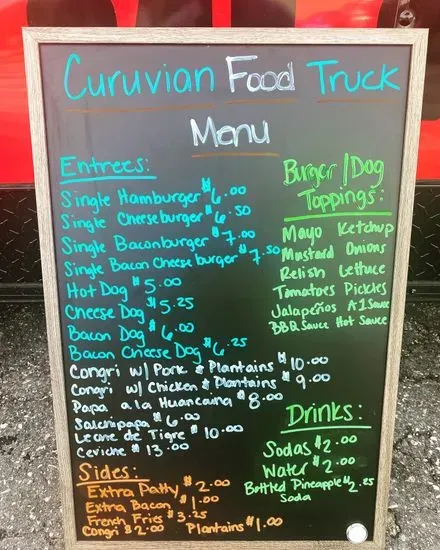 Curuvian Food Truck
Menu
Entrees:
Single Hamburger $6.00
Single Cheeseburger $6.50
Single Baconburger $7.00
Single Bacon Cheeseburger $7.50
Hot Dog $5.00
Cheese Dog $5.25
Bacon Dog $6.00
Bacon Cheese Dog $6.25
Congri w/ Pork & Plantains $10.00
Congri w/ Chicken & Plantains $9.00
Papa a la Huancaina $8.00
Salchipapa $6.00
Leane de Tigre $10.00
Ceviche $13.00
Sides:
Extra Patty $2.00
Extra Bacon $1.00
French Fries $3.25
Congri $2.00 Plantains $1.00
Burger/Dog
Toppings:
Mayo Ketchup
Mustard Onions
Relish Lettuce
Tomatoes Pickles
Jalapeños A1 Sauce
BBQ Sauce Hot Sauce
Drinks:
Sodas $2.00
Water $2.00
Bottled Pineapple $2.25
Soda